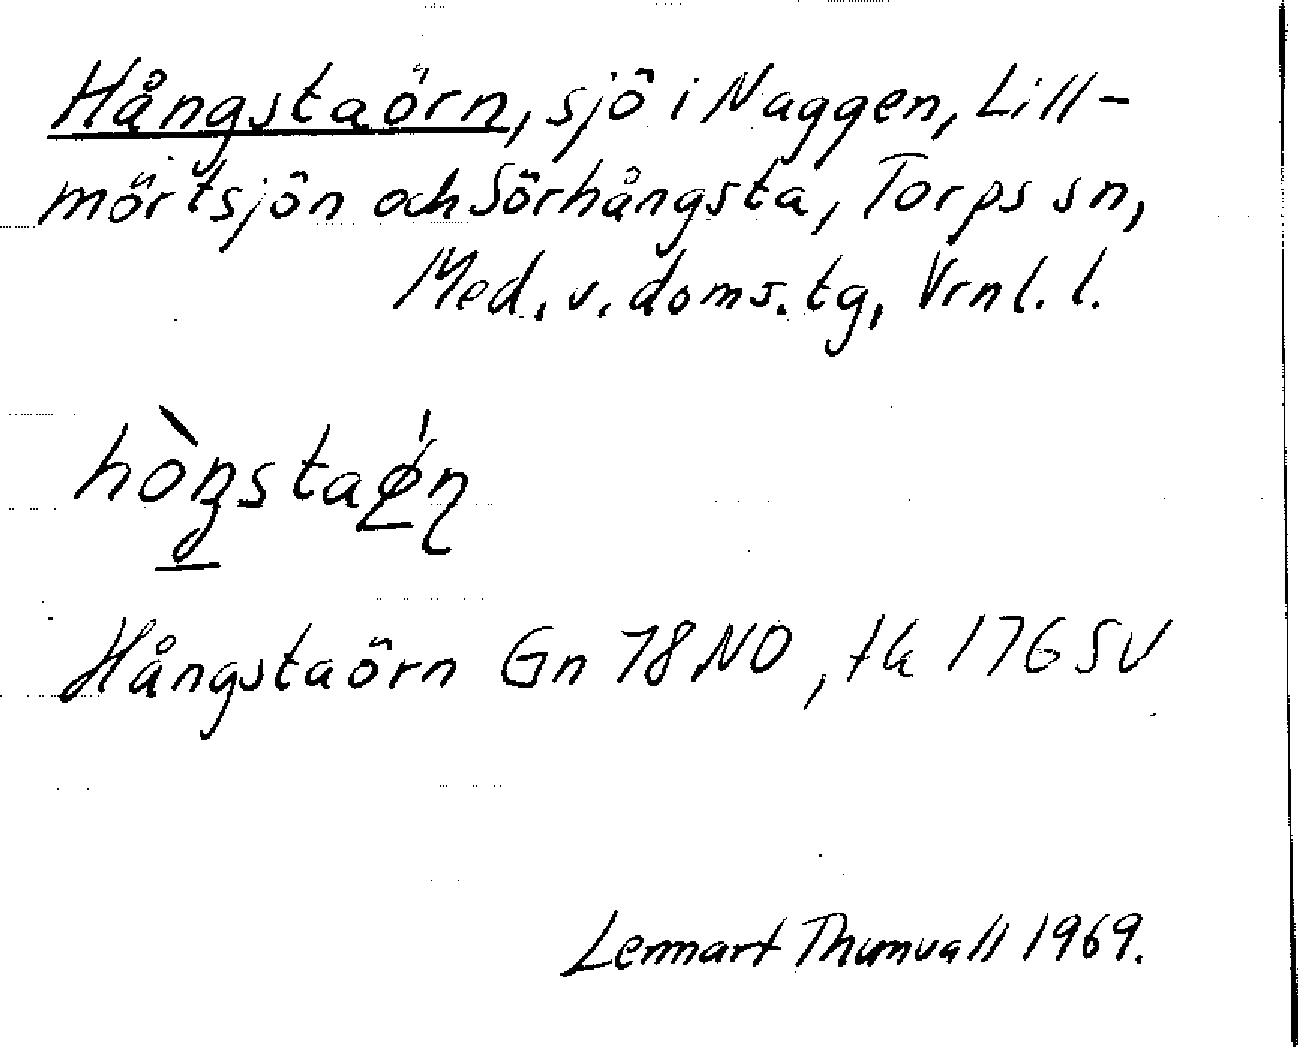 Hångstaörn, sjö i Naggen, Lill-
mörtsjön och Sörhångsta, Torps sn,
Med. v. doms. tg, Vrnl. l.
hòŋstaǿn
Hångstaörn Gn 78 NO, tk 176 SV
Lennart Thunvall 1969.